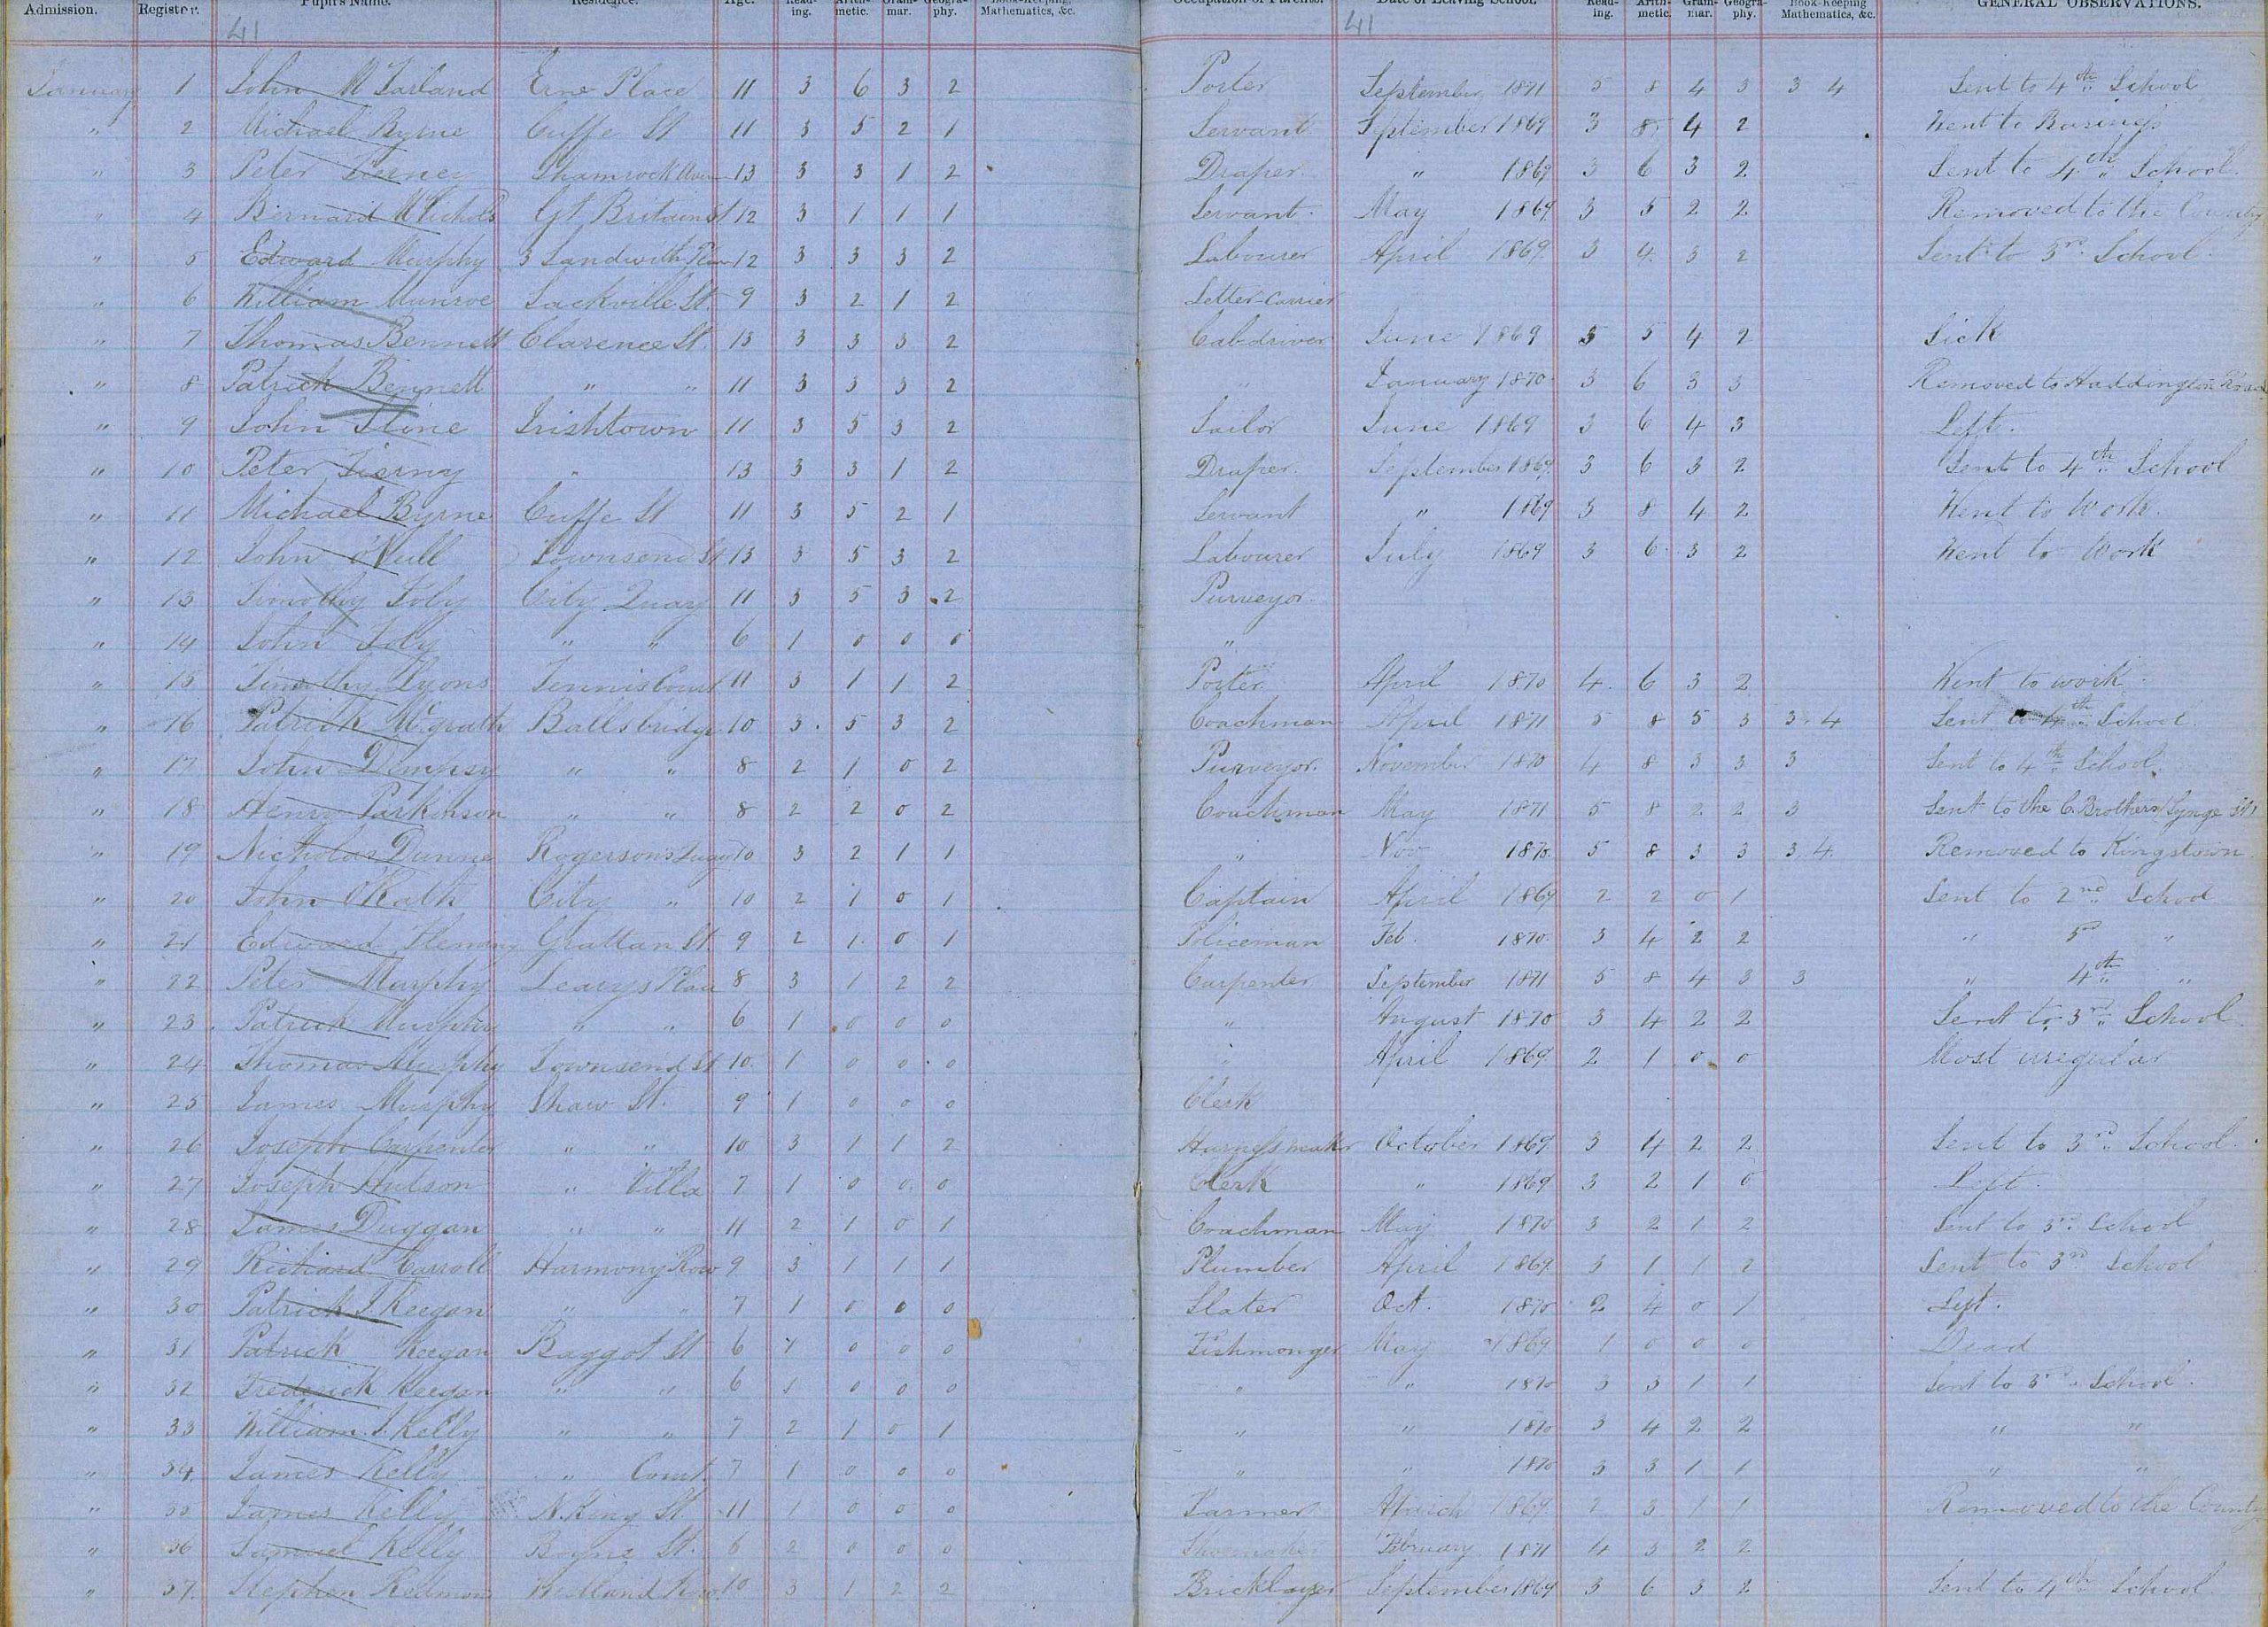 Admission. Register. Pupil's Name. Residence. Age. Read-ing. Arith-metic. Gram-mar. Geogra-phy. Book-Keeping, Mathematics, &c. Occupation of Parents. Date of Leaving School. Read-ing. Arith-metic. Gram-mar. Geogra-phy. Book-Keeping Mathematics, &c. GENERAL OBSERVATIONS.
41 41
January 1 John McFarland Erne Place 11 3 6 3 2 Porter September 1871 5 8 4 3 3 4 Sent to 4th School
" 2 Michael Byrne Cuffe St 11 3 5 2 1 Servant September 1869 3 8 4 2 Went to Business
" 3 Peter Shamrock 13 3 3 1 2 Draper " 1869 3 6 3 2 Sent to 4th School.
" 4 Bernard McNichols Gt Britain St 12 3 1 1 1 Servant. May 1869 3 5 2 2 Removed to the County
" 5 Edward Murphy 3 Sandwith 12 3 3 3 2 Labourer April 1869. 3 4 3 2 Sent to 3rd School.
" 6 William Munroe Sackville St. 9 3 2 1 2 Letter-Carrier
" 7 Thomas Bennett Clarence St. 13 3 3 3 2 Cabdriver June 1869 5 4 2 Sick
" 8 Patrick Bennett " " 11 3 3 3 2 " January 1870 3 6 3 3 Removed to Haddington Road
" 9 John Irishtown 11 3 5 3 2 Sailor June 1869 3 6 4 3 Left.
" 10 Peter Tierny " 13 3 3 1 2 Draper. September 1869. 3 6 3 2 Sent to 4th School
" 11 Michael Byrne Cuffe St 11 3 5 2 1 Servant " 1869 3 8 4 2 Went to Work.
" 12 John Townsend St 13 3 5 3 2 Labourer July 1869 3 6 3 2 Went to Work
" 13 Timothy Foly City Quay 11 3 5 3 2 Purveyor.
" 14 John Foly " " 6 1 0 0 0 "
" 15 Timothy Lyons Tennis Court 11 3 1 1 2 Porter April 1870 4 6 3 2 Went to work
" 16 Patrick McGrath Ballsbridge 10 3 5 3 2 Coachman April 1871 5 8 5 3 3 4 Sent to 4th School.
" 17 John Dempsy " " 8 2 1 0 2 Purveyor. November 1870 4 8 3 3 3 Sent to 4th School.
" 18 Henry Parkinson " " 8 2 2 0 2 Coachman May 1871 5 8 2 2 3 Sent to the C. Brothers Synge St
" 19 Nicholas Dunne Rogersons Quay 10 3 2 1 1 " Nov 1870. 5 8 3 3 3 4. Removed to Kingstown
" 20 John City " 10 2 1 0 1 Captain April 1869 2 2 0 1 Sent to 2nd School
" 21 Edward Fleming Grattan St 9 2 1 0 1 Policeman Feb. 1870. 3 4 2 2 " 3rd "
" 22 Peter Murphy Learys Place 8 3 1 2 2 Carpenter September 1871 5 8 4 3 3 " 4th "
" 23 Patrick Murphy " " 6 1 0 0 0 " August 1870 3 4 2 2 Sent to 3rd School.
" 24 Thomas Murphy Townsend St 10 1 0 0 0 " April 1869 2 1 0 0 Most irregular
" 25 James Murphy Shaw St. 9 1 0 0 0 Clerk
" 26 Joseph Carpenter " " 10 3 1 1 2 Harness maker October 1869 3 4 2 2 Sent to 3rd School.
" 27 Joseph Hutson " Villa 7 1 0 0 0 Clerk " 1869 3 2 1 0 Left.
" 28 James Duggan " " 11 2 1 0 1 Coachman May 1870 3 2 1 2 Sent to 3rd School
" 29 Richard Carroll Harmony Row 9 3 1 1 1 Plumber April 1869 3 1 1 2 Sent to 3rd School
" 30 Patrick J. Keegan " " 7 1 0 0 0 Slater Oct. 1870 2 4 0 1 Left.
" 31 Patrick Keegan Baggot St 6 1 0 0 0 Fishmonger May 1869 1 0 0 0 Dead
" 32 Frederick Keegan " " 6 1 0 0 0 " " 1870 3 3 1 1 Sent to 3rd School.
" 33 William J. Kelly " " 7 2 1 0 1 " " 1870 3 4 2 2 " "
" 34 James Kelly " Court. 7 1 0 0 0 " " 1870 3 3 1 1 " "
" 35 James Kelly N. King St 11 1 0 0 0 Farmer March 1869. 2 3 1 1 Removed to the County
" 36 Samuel Kelly Boyne St. 6 2 0 0 0 Shoemaker February 1871 4 3 2 2
" 37. Stephen Redmond 10 3 1 2 2 Bricklayer September 1869 3 6 3 2 Sent to 4th School